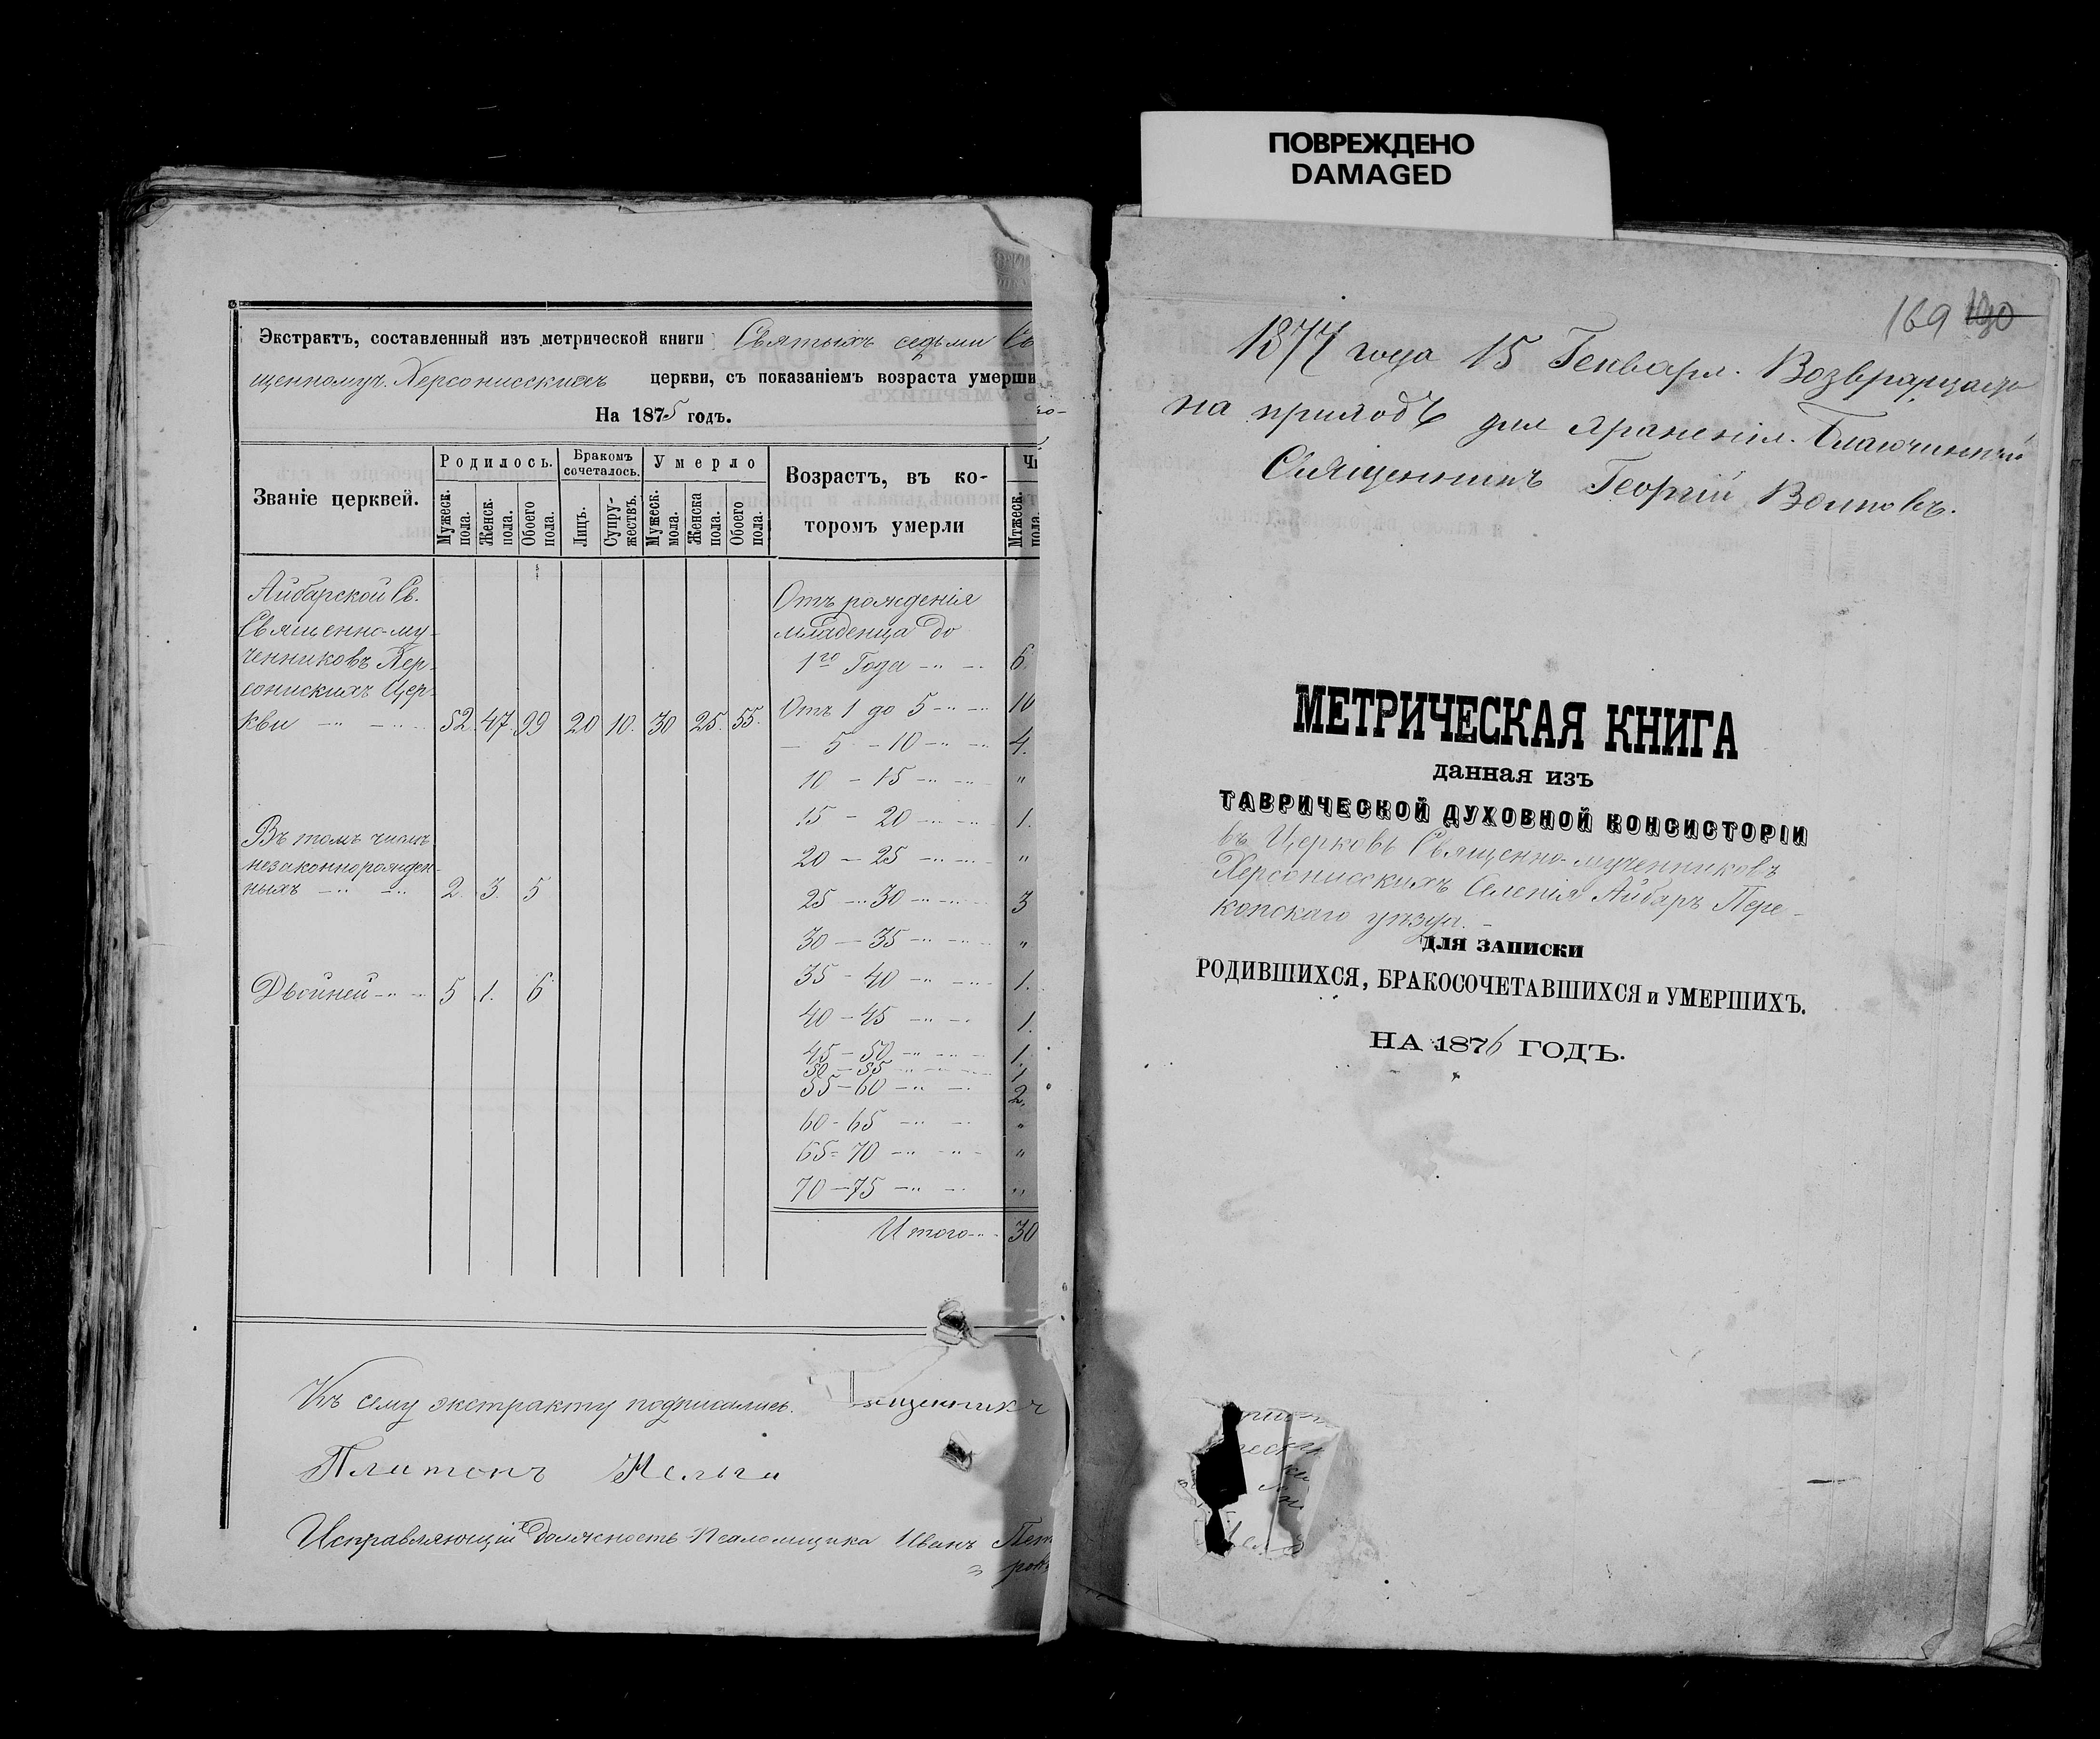 Экстрактъ, составленный изъ метрической книги Святыхъ седьми
щенномуч. Херсонисскихъ церкви, съ показаніемъ возраста умерши
На 1875 годъ.
Званіе церквей.
Родилось.
Бракомъ сочеталось.
Умерло
Возрастъ, въ ко-
торомъ умерли
Мужеск. пола.
Женск. пола.
Обоего пола.
Лицъ.
Супру- жествъ.
Мужеск. мола.
Женска пола.
Обоего пола.
Мтжеск. пола.
Айбарской Св.
Священно-му-
ченниковъ Хер-
сонискихъ Цер-
кви 52. 47. 99 20 10. 30 25. 55.
Отъ рожденія
младенца до
1го Года 6.
Отъ 1 до 5 10
5 - 10 4.
10 - 15 "
15 - 20 1.
20 - 25 "
25 - 30 3
30 - 35 "
35 - 40 1.
40 - 45 1.
45 - 50 1.
50 - 55 1
55 - 60 2.
60 - 65 "
65 - 70 "
70 - 75 "
Итого 30
Въ томъ числѣ
незаконнорожден-
ныхъ 2. 3. 5
Двойней 5 1. 6
Къ сему экстракту подписались.
Платонъ
Исправляющій должность Псаломщика Иванъ Пет
ров
ПОВРЕЖДЕНО
DAMAGED
169 190
1877 года 15 Генваря. Возвращается
на приходъ для храненія. Благочинный
Священникъ Георгій Воиновъ.
МЕТРИЧЕСКАЯ КНИГА
данная изъ
ТАВРИЧЕСКОЙ ДУХОВНОЙ КОНСИСТОРІИ
въ Церковь Священно-мученниковъ
Херсонисскихъ Селенія Айбаръ Пере-
копскаго уѣзда.
ДЛЯ ЗАПИСКИ
РОДИВШИХСЯ, БРАКОСОЧЕТАВШИХСЯ и УМЕРШИХЪ.
НА 1876 ГОДЪ.